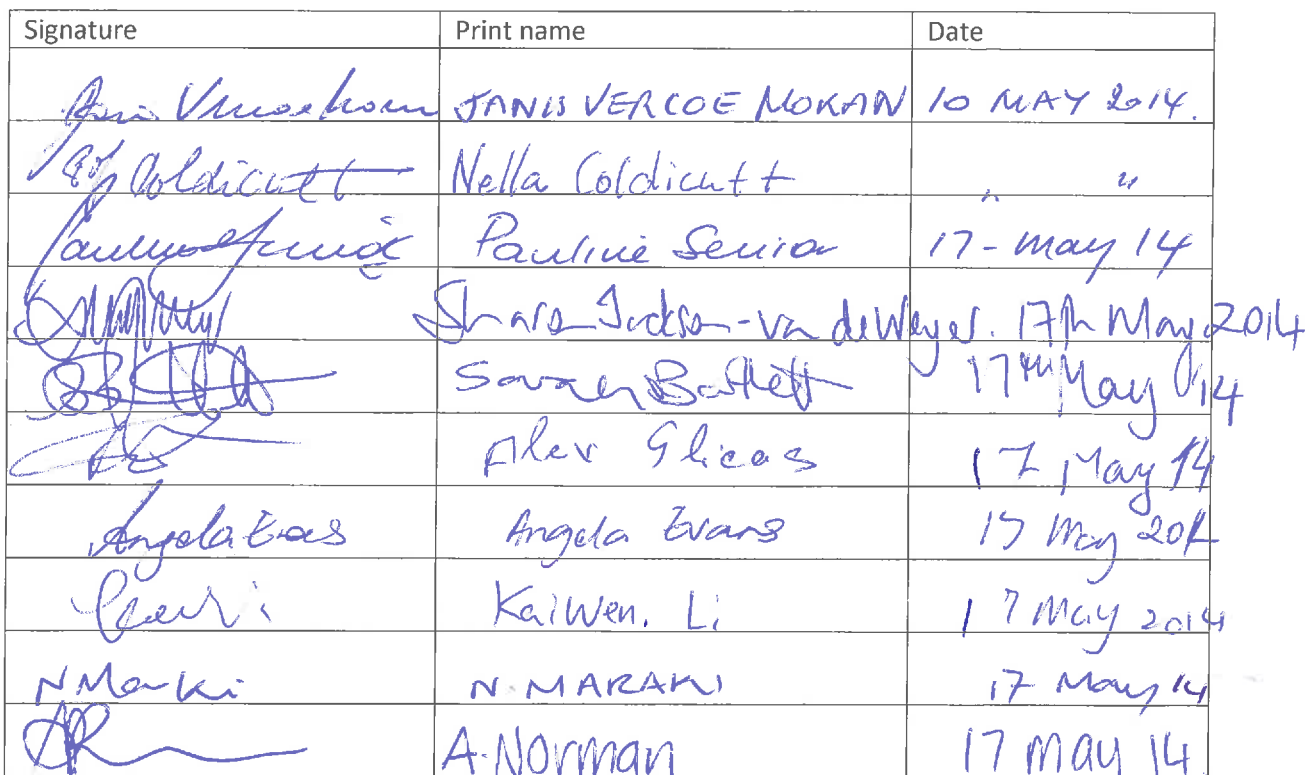 Signature Print name Date
JANIS VERCOE MORAN 10 MAY 2014.
Coldicutt Nella Coldicutt " "
Pauline Senior 17 - May 14
Sharon Jackson-van de Weyer. 17th May 2014
Sarah Bartlett 17th May '14
Alex Glicas 17 May 14
Angela Evans Angela Evans 17 May 2014
KaiWen. Li 17 May 2014
N Maraki N. MARAKI 17 May 14
A. Norman 17 May 14